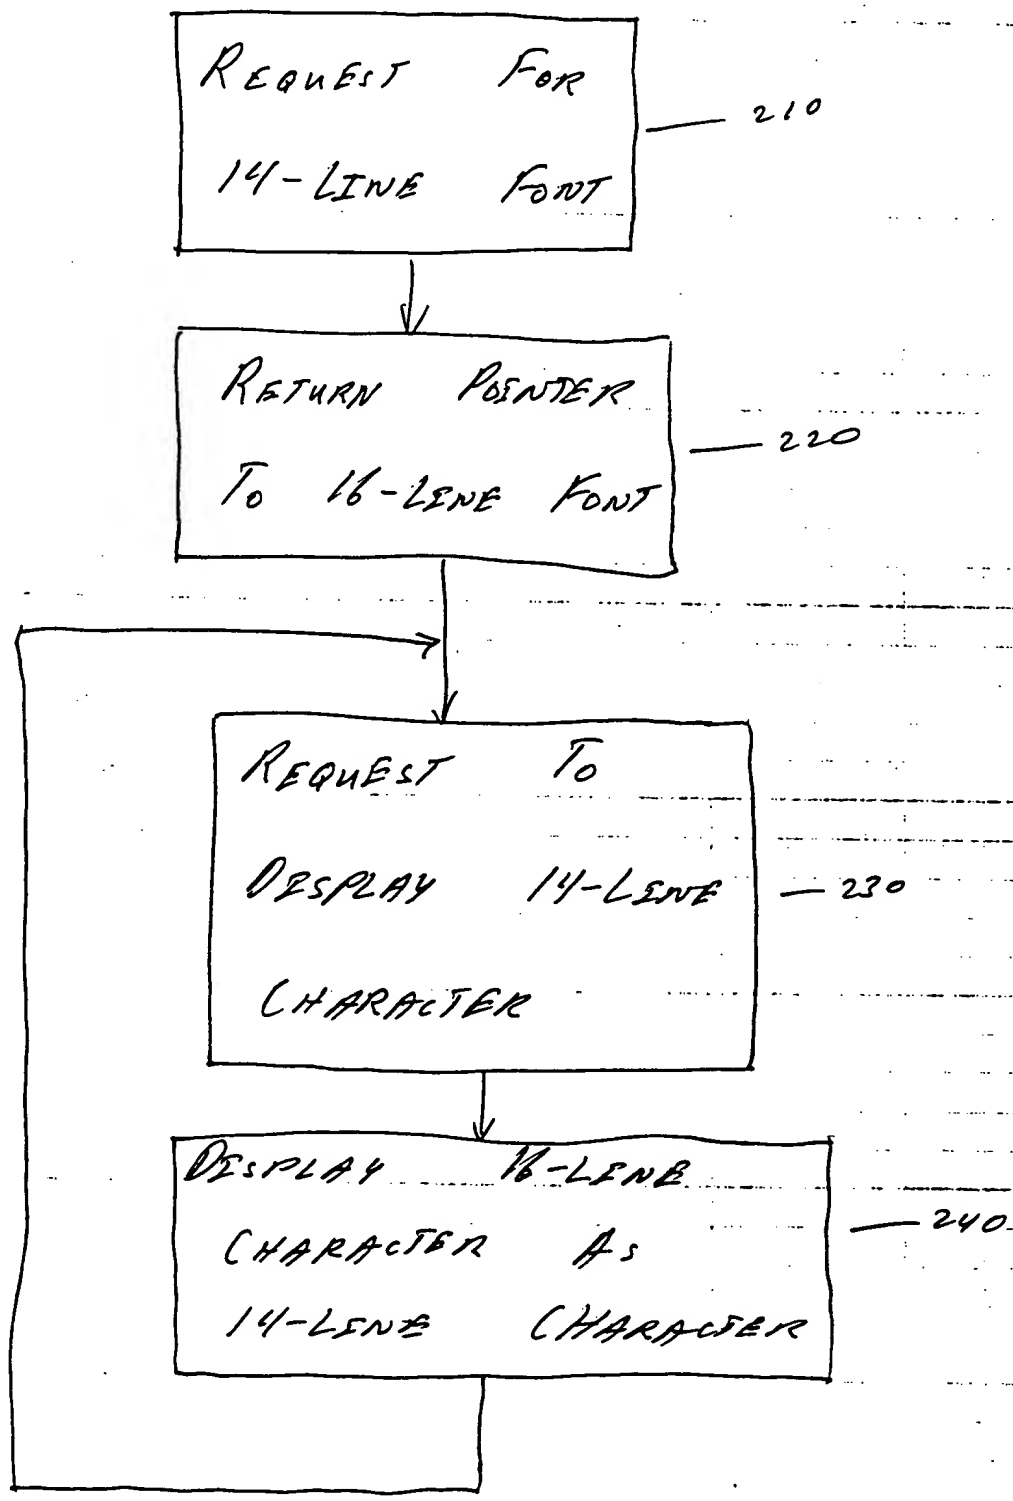 REQUEST FOR
14-LINE FONT
210
RETURN POINTER
TO 16-LINE FONT
220
REQUEST TO
DISPLAY 14-LINE
CHARACTER
230
DISPLAY 16-LINE
CHARACTER AS
14-LINE CHARACTER
240